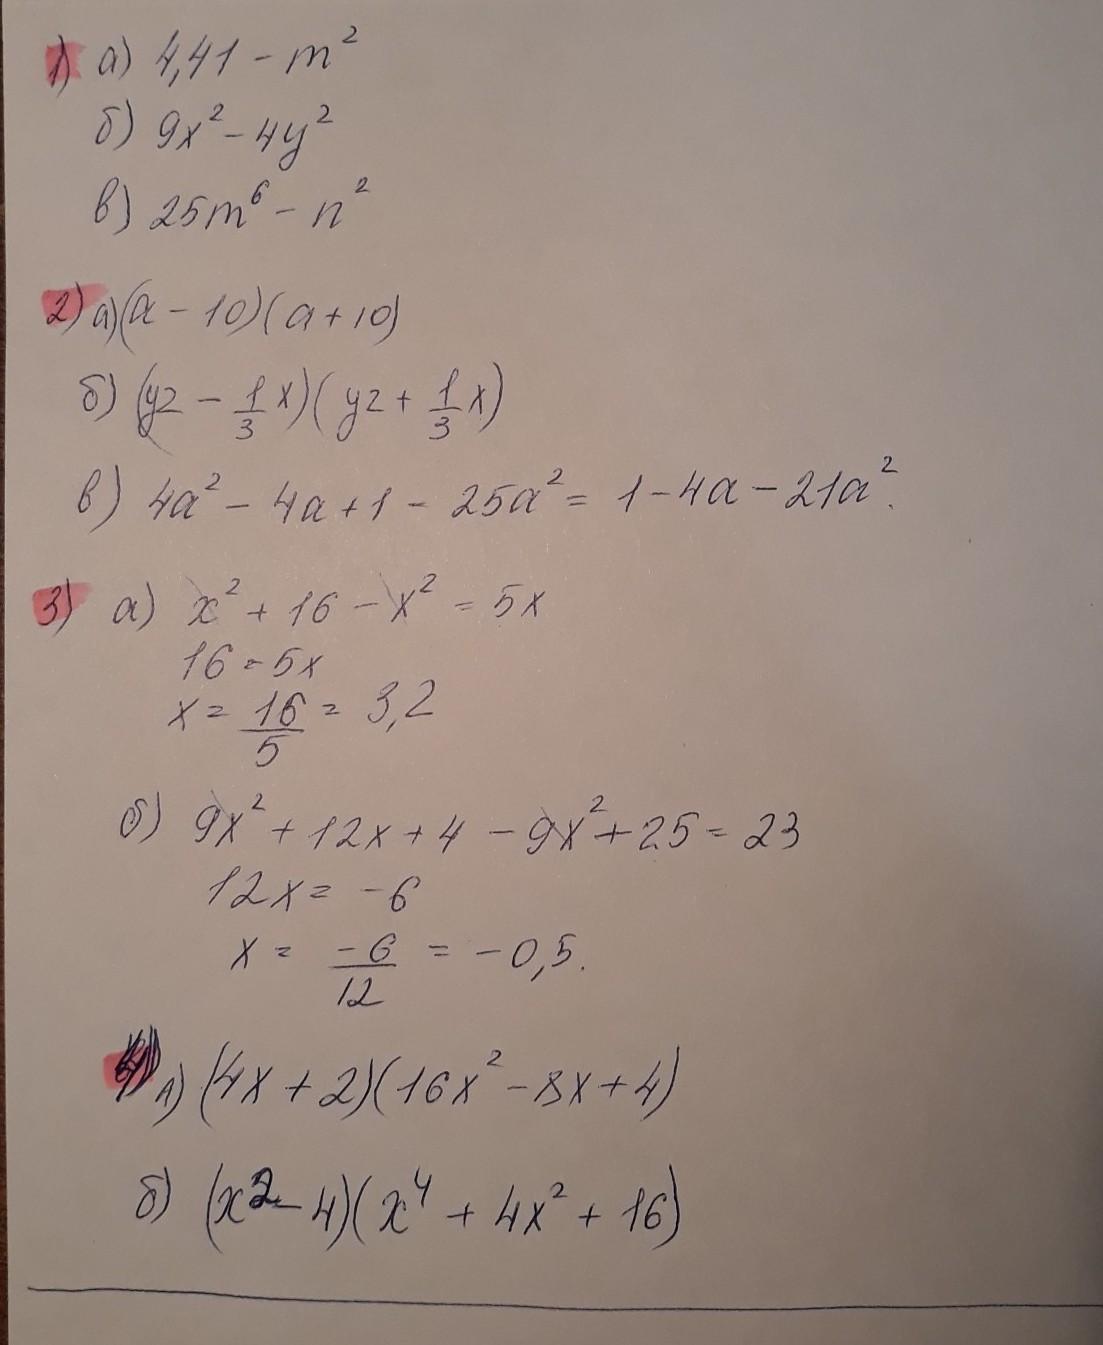 1) а) 4,41 - m²
б) 9x² - 4y²
в) 25m⁶ - n²
2) а) (a - 10)(a + 10)
б) (yz - 1/3 x)(yz + 1/3 x)
в) 4a² - 4a + 1 - 25a² = 1 - 4a - 21a².
3) а) x² + 16 - x² = 5x
16 = 5x
x = 16/5 = 3,2
б) 9x² + 12x + 4 - 9x² + 25 = 23
12x = -6
x = -6/12 = -0,5.
4) а) (4x + 2)(16x² - 8x + 4)
б) (x² - 4)(x⁴ + 4x² + 16)